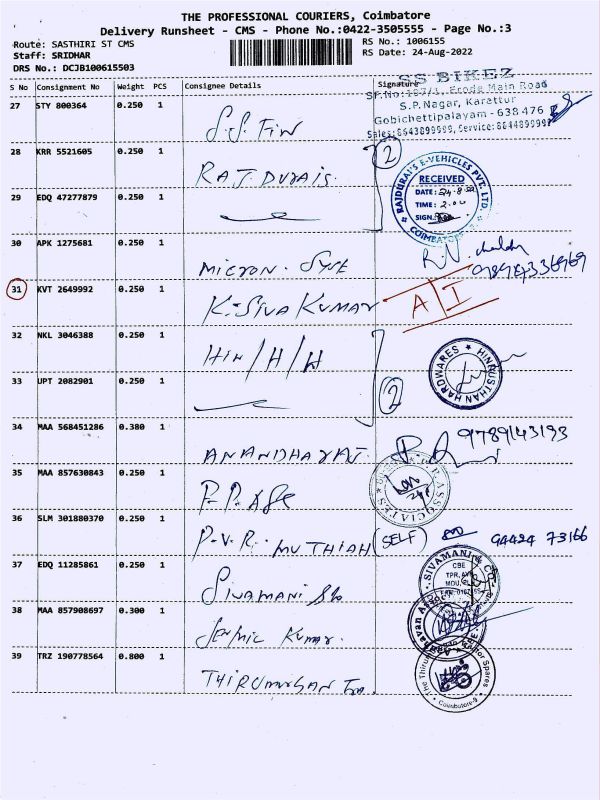 THE PROFESSIONAL COURIERS, Coimbatore
Delivery Runsheet - CMS - Phone No.:0422-3505555 - Page No.:3
Route: SASTHIRI ST CMS
RS No.: 1006155
Staff: SRIDHAR
RS Date: 24-Aug-2022
DRS No.: DCJB100615503
S No Consignment No Weight PCS Consignee Details Signature
SS BIKEZ
SF.No:187/1, Erode Main Road
S.P.Nagar, Karattur
Gobichettipalayam - 638 476
Sales: 8643899999, Service: 8644899999
27 STY 800364 0.250 1
S.S. Fin
28 KRR 5521605 0.250 1
RAJ DURAIS.
2
RAJDURAI'S E-VEHICLES PVT. LTD.
RECEIVED
DATE: 24.8.22
TIME: 2.00
SIGN.
COIMBATORE
29 EDQ 47277879 0.250 1
30 APK 1275681 0.250 1
MICRON. Syst
R.N.
31 KVT 2649992 0.250 1
K. SIVA KUMAR
A I
32 NKL 3046388 0.250 1
HIN/H/W
HINDUSTHAN HARDWARES
33 UPT 2082901 0.250 1
2
34 MAA 568451286 0.380 1
ANANDHARAJ.
9789143193
35 MAA 857630843 0.250 1
P.P. ASC
ASSOCIATES
36 SLM 301880370 0.250 1
P.V.R. MUTHIAH (SELF)
94424 73166
37 EDQ 11285861 0.250 1
SIVAMANI & Co
SIVAMANI & CO
CBE
38 MAA 857908697 0.300 1
Kumar.
39 TRZ 190778564 0.800 1
THIRUMURGAN Tra
Coimbatore-9